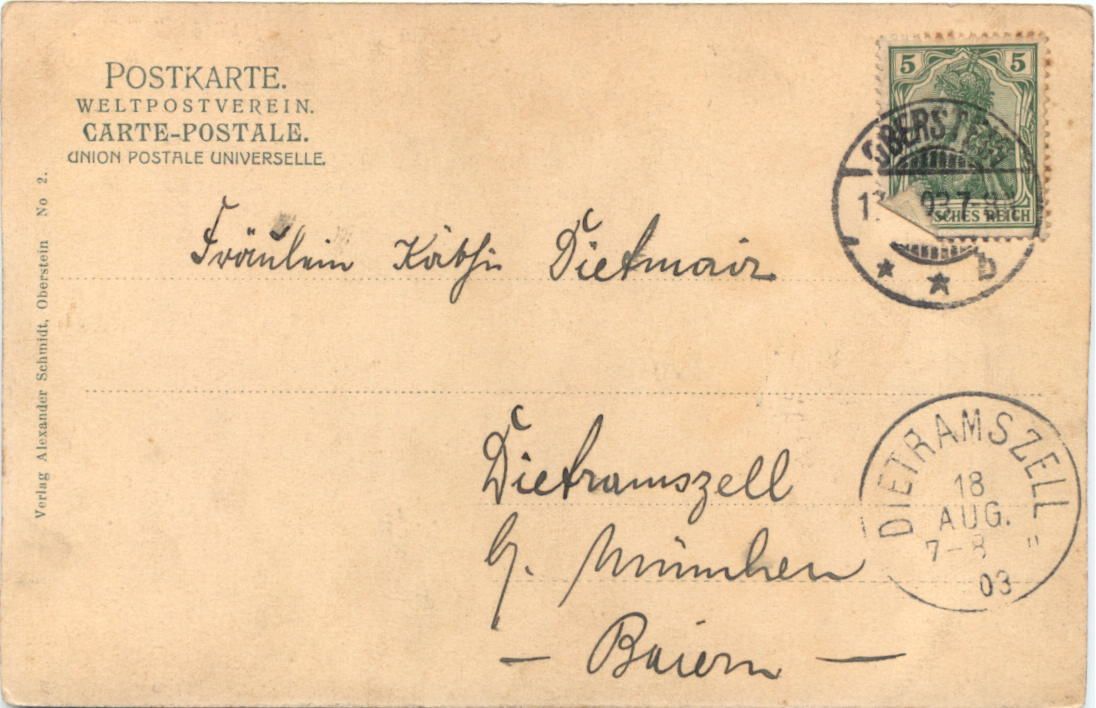 POSTKARTE.
WELTPOSTVEREIN.
CARTE-POSTALE.
UNION POSTALE UNIVERSELLE.
5 5
OBERSTEIN
03 7-8
SCHES REICH
* * b
Fräulein Käthi Dietmair
Dietramszell
b/. München
- Baiern -
DIETRAMSZELL
18
AUG.
7-8
03
Verlag Alexander Schmidt, Oberstein No 2.